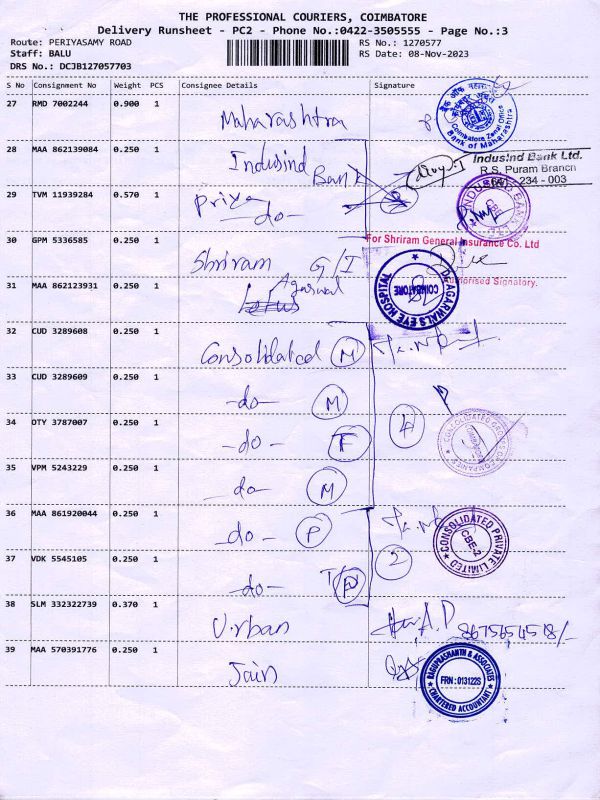 THE PROFESSIONAL COURIERS, COIMBATORE
Delivery Runsheet - PC2 - Phone No.:0422-3505555 - Page No.:3
Route: PERIYASAMY ROAD
RS No.: 1270577
Staff: BALU
RS Date: 08-Nov-2023
DRS No.: DCJB127057703
S No Consignment No Weight PCS Consignee Details Signature
27 RMD 7002244 0.900 1 Maharashtra
बैंक ऑफ महाराष्ट्र
Coimbatore Zonal Office
Bank of Maharashtra
28 MAA 862139084 0.250 1 Indusind Bank
IndusInd Bank Ltd.
R.S. Puram Branch
234 - 003
29 TVM 11939284 0.570 1 Priya -do-
INDUSIND BANK LTD.
CBE
30 GPM 5336585 0.250 1 Shriram G/I
For Shriram General Insurance Co. Ltd
Authorised Signatory.
31 MAA 862123931 0.250 1 Agarwal
Dr.AGARWAL'S EYE HOSPITAL
COIMBATORE
32 CUD 3289608 0.250 1 Consolidated M
33 CUD 3289609 0.250 1 -do- M
34 OTY 3787007 0.250 1 -do- T
4
35 VPM 5243229 0.250 1 -do- M
36 MAA 861920044 0.250 1 -do- P
CONSOLIDATED PRIVATE LIMITED
CBE-2
37 VDK 5545105 0.250 1 -do-
2
38 SLM 332322739 0.370 1 Urban
39 MAA 570391776 0.250 1 Jain
RAGUPRASHANTH & ASSOCIATES
FRN : 013122S
CHARTERED ACCOUNTANT